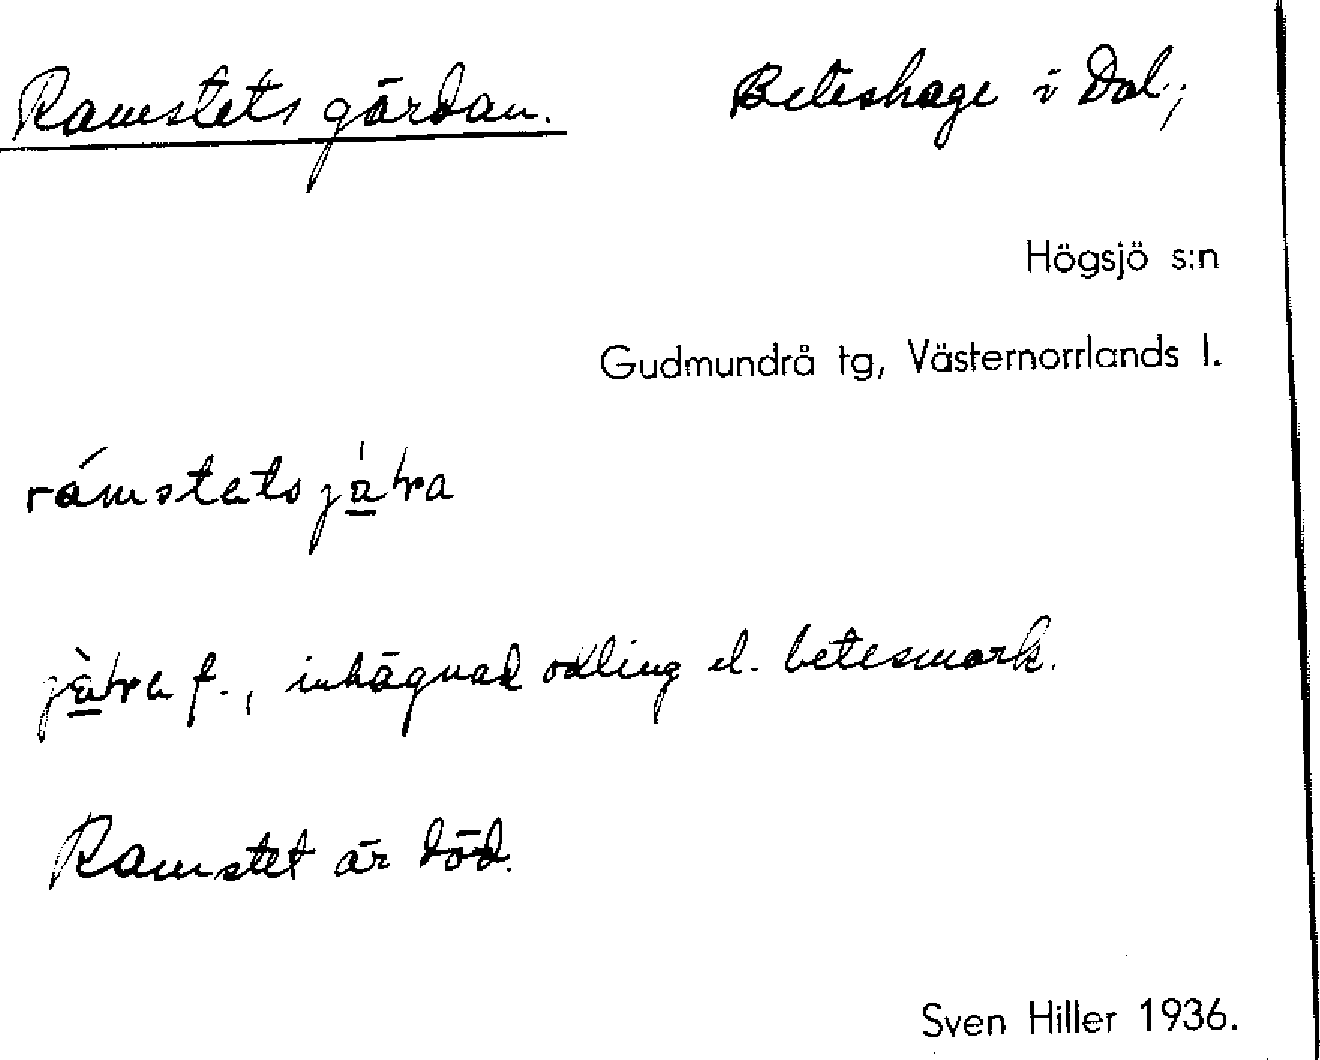 Ramstets gärdan. Beteshage i Dal;
Högsjö s:n
Gudmundrå tg, Västernorrlands l.
rámstetsjàtra
jàtra f., inhägnad odling el. betesmark.
Ramstet är död.
Sven Hiller 1936.